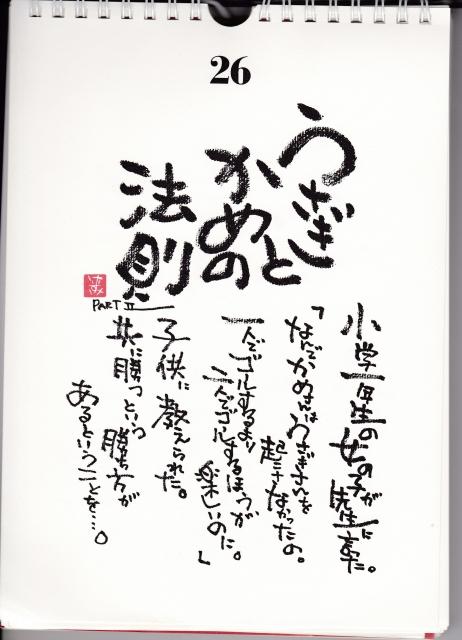 26
うさぎと
かめの
法則
PART II
小学一年生の女の子が先生に言った。
「なんでかめさんはうさぎさんを
起こさなかったの。
一人でゴールするより
二人でゴールするほうが
楽しいのに。」
子供に教えられた。
共に勝つという勝ち方が
あるということを…。